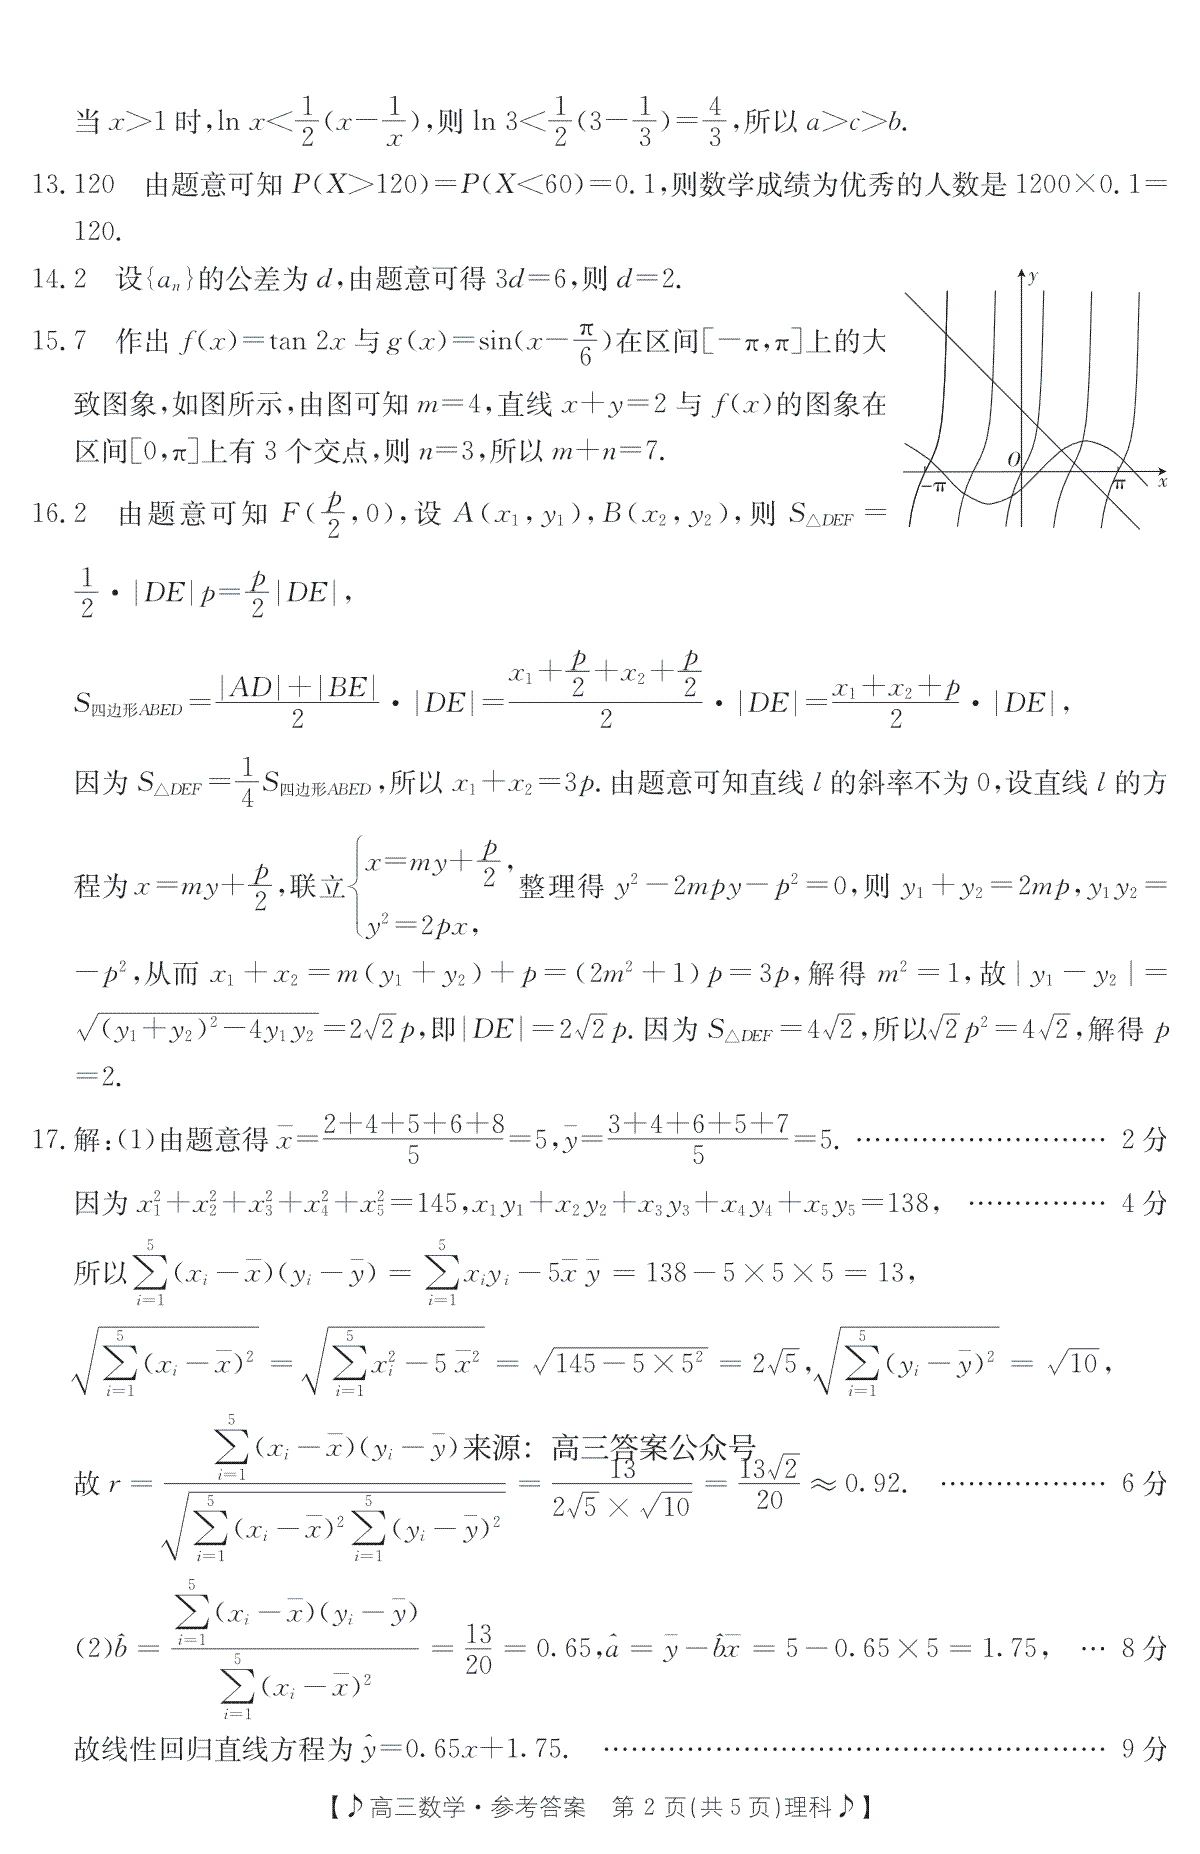 当 x>1 时,ln x<1/2(x-1/x),则 ln 3<1/2(3-1/3)=4/3,所以 a>c>b.
13.120 由题意可知 P(X>120)=P(X<60)=0.1,则数学成绩为优秀的人数是 1200×0.1=
120.
14.2 设{aₙ}的公差为 d,由题意可得 3d=6,则 d=2.
15.7 作出 f(x)=tan 2x 与 g(x)=sin(x-π/6)在区间[-π,π]上的大
致图象,如图所示,由图可知 m=4,直线 x+y=2 与 f(x)的图象在
区间[0,π]上有 3 个交点,则 n=3,所以 m+n=7.
y
O
-π
π
x
16.2 由题意可知 F(p/2,0),设 A(x₁,y₁),B(x₂,y₂),则 S△DEF=
1/2·|DE|p=p/2|DE|,
S四边形ABED=(|AD|+|BE|)/2·|DE|=(x₁+p/2+x₂+p/2)/2·|DE|=(x₁+x₂+p)/2·|DE|,
因为 S△DEF=1/4 S四边形ABED,所以 x₁+x₂=3p.由题意可知直线 l 的斜率不为 0,设直线 l 的方
程为 x=my+p/2,联立{x=my+p/2, y²=2px, 整理得 y²-2mpy-p²=0,则 y₁+y₂=2mp,y₁y₂=
-p²,从而 x₁+x₂=m(y₁+y₂)+p=(2m²+1)p=3p,解得 m²=1,故|y₁-y₂|=
√((y₁+y₂)²-4y₁y₂)=2√2p,即|DE|=2√2p.因为 S△DEF=4√2,所以√2p²=4√2,解得 p
=2.
17.解:(1)由题意得 x̄=(2+4+5+6+8)/5=5,ȳ=(3+4+6+5+7)/5=5. ………………………… 2 分
因为 x₁²+x₂²+x₃²+x₄²+x₅²=145,x₁y₁+x₂y₂+x₃y₃+x₄y₄+x₅y₅=138, …………… 4 分
所以∑ᵢ₌₁⁵(xᵢ-x̄)(yᵢ-ȳ)=∑ᵢ₌₁⁵xᵢyᵢ-5x̄ȳ=138-5×5×5=13,
√(∑ᵢ₌₁⁵(xᵢ-x̄)²)=√(∑ᵢ₌₁⁵xᵢ²-5x̄²)=√(145-5×5²)=2√5,√(∑ᵢ₌₁⁵(yᵢ-ȳ)²)=√10,
来源：高三答案公众号
故 r=∑ᵢ₌₁⁵(xᵢ-x̄)(yᵢ-ȳ)/√(∑ᵢ₌₁⁵(xᵢ-x̄)²∑ᵢ₌₁⁵(yᵢ-ȳ)²)=13/(2√5×√10)=13√2/20≈0.92. ……………… 6 分
(2)b̂=∑ᵢ₌₁⁵(xᵢ-x̄)(yᵢ-ȳ)/∑ᵢ₌₁⁵(xᵢ-x̄)²=13/20=0.65,â=ȳ-b̂x̄=5-0.65×5=1.75, … 8 分
故线性回归直线方程为 ŷ=0.65x+1.75. ……………………………………………… 9 分
【♪高三数学·参考答案 第 2 页(共 5 页)理科♪】